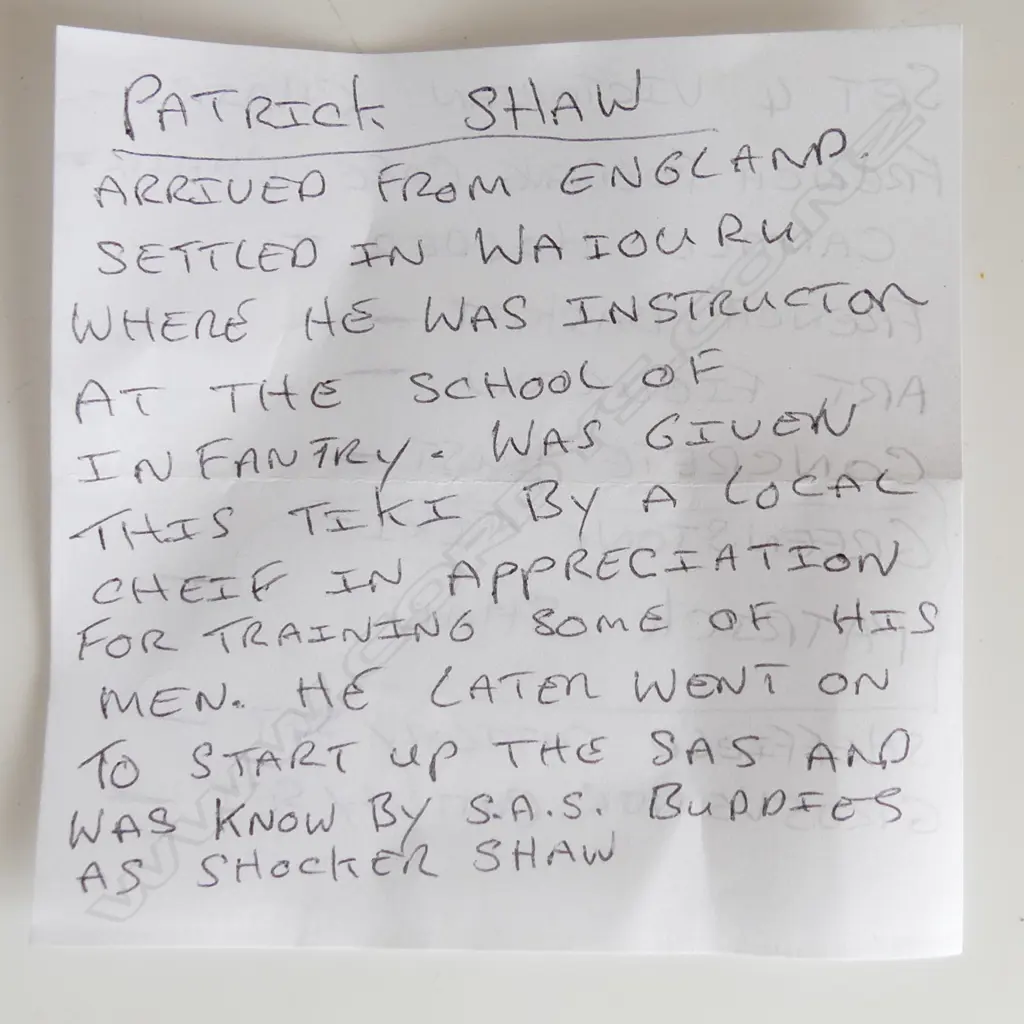 PATRICK SHAW
ARRIVED FROM ENGLAND.
SETTLED IN WAIOURU
WHERE HE WAS INSTRUCTOR
AT THE SCHOOL OF
INFANTRY. WAS GIVEN
THIS TIKI BY A LOCAL
CHEIF IN APPRECIATION
FOR TRAINING SOME OF HIS
MEN. HE LATER WENT ON
TO START UP THE SAS AND
WAS KNOW BY S.A.S. BUDDIES
AS SHOCKER SHAW